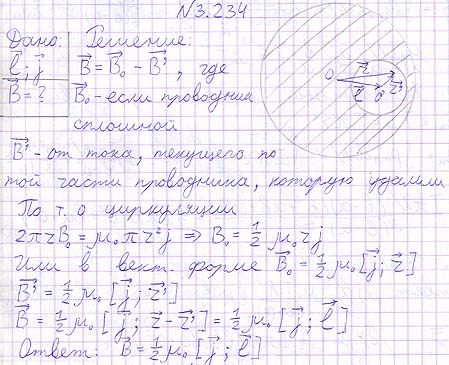 №3.234
Дано: Решение:
l⃗; j⃗ B⃗ = B⃗₀ − B⃗', где
B⃗ = ? B⃗₀ - если проводник
сплошной
B⃗' - от тока, текущего по
той части проводника, которую удалили
По т. о циркуляции
2πrB₀ = μ₀πr²j ⇒ B₀ = ½ μ₀rj
Или в вект. форме B⃗₀ = ½ μ₀[j⃗; r⃗]
B⃗' = ½ μ₀[j⃗; r⃗']
B⃗ = ½ μ₀[j⃗; r⃗ − r⃗'] = ½ μ₀[j⃗; l⃗]
Ответ: B⃗ = ½ μ₀[j⃗; l⃗]
O r⃗ r⃗' l⃗ O'